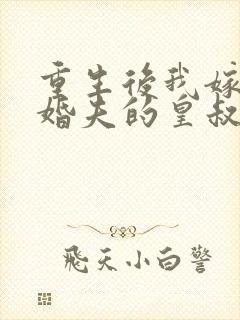 重生後我嫁
婚夫的皇叔
飛天小白警